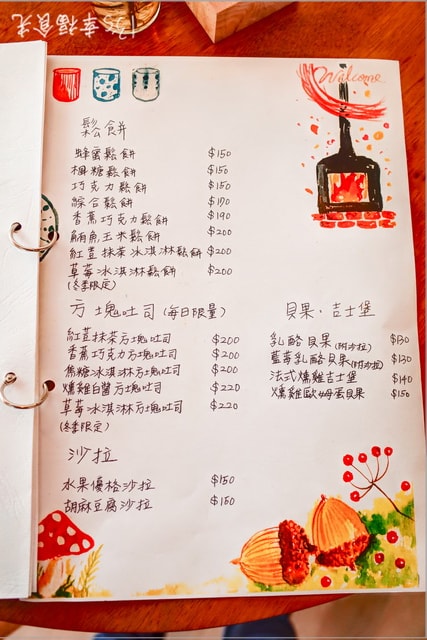 幸福食光
Welcome
鬆餅
蜂蜜鬆餅 $150
楓糖鬆餅 $150
巧克力鬆餅 $150
綜合鬆餅 $170
香蕉巧克力鬆餅 $190
鮪魚玉米鬆餅 $200
紅荳抹茶冰淇淋鬆餅 $200
草莓冰淇淋鬆餅 $200
(冬季限定)
方塊吐司(每日限量)
紅荳抹茶方塊吐司 $200
香蕉巧克力方塊吐司 $200
焦糖冰淇淋方塊吐司 $200
燻雞白醬方塊吐司 $220
草莓冰淇淋方塊吐司 $220
(冬季限定)
貝果·吉士堡
乳酪貝果(附沙拉) $130
藍莓乳酪貝果(附沙拉) $130
法式燻雞吉士堡 $140
燻雞歐姆蛋貝果 $150
沙拉
水果優格沙拉 $150
胡麻豆腐沙拉 $150